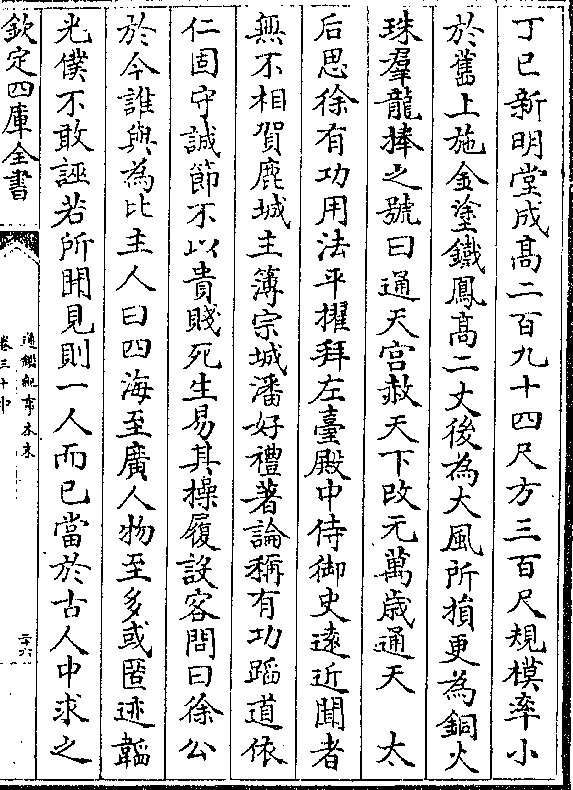 丁巳新明堂成高二百九十四尺方三百尺規模率小
於舊上施金塗鐵鳳高二丈後為大風所損更為銅火
珠羣龍捧之號曰通天宮赦天下改元萬歲通天　大
后思徐有功用法平擢拜左臺殿中侍御史遠近聞者
無不相賀鹿城主簿宗城潘好禮著論稱有功蹈道依
仁固守誠節不以貴賤死生易其操履設客問曰徐公
於今誰與為比主人曰四海至廣人物至多或匿迹韜
光僕不敢誣若所聞見則一人而已當於古人中求之
欽定四庫全書
通鑑紀事本末
卷三十中
三六